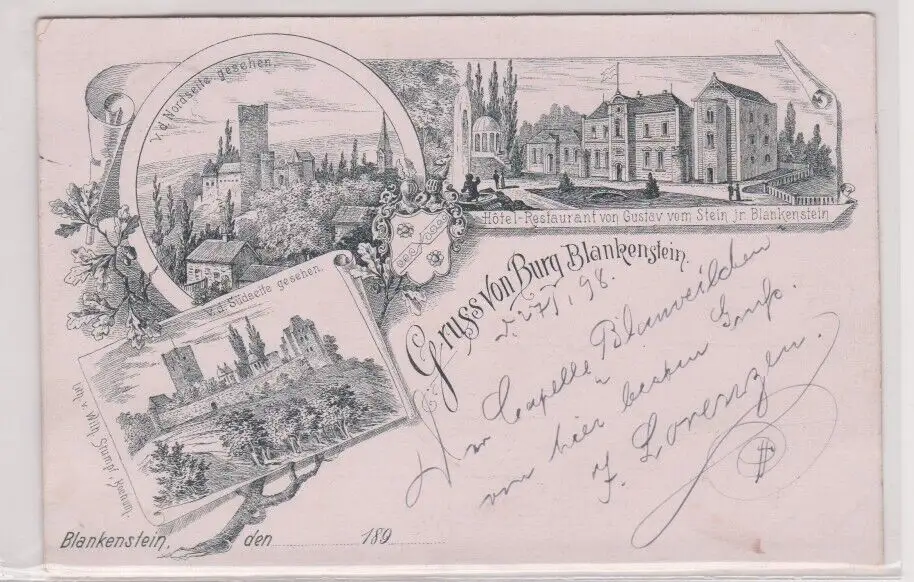 v. d. Nordseite gesehen.
Hôtel-Restaurant von Gustav vom Stein jr. Blankenstein
Gruss von Burg Blankenstein.
v. d. Südseite gesehen.
Lith. v. Wilh. Stumpf, Bochum.
98.
Capelle
von hier besten Gruß.
J. Lorenzen.
Blankenstein, den 189